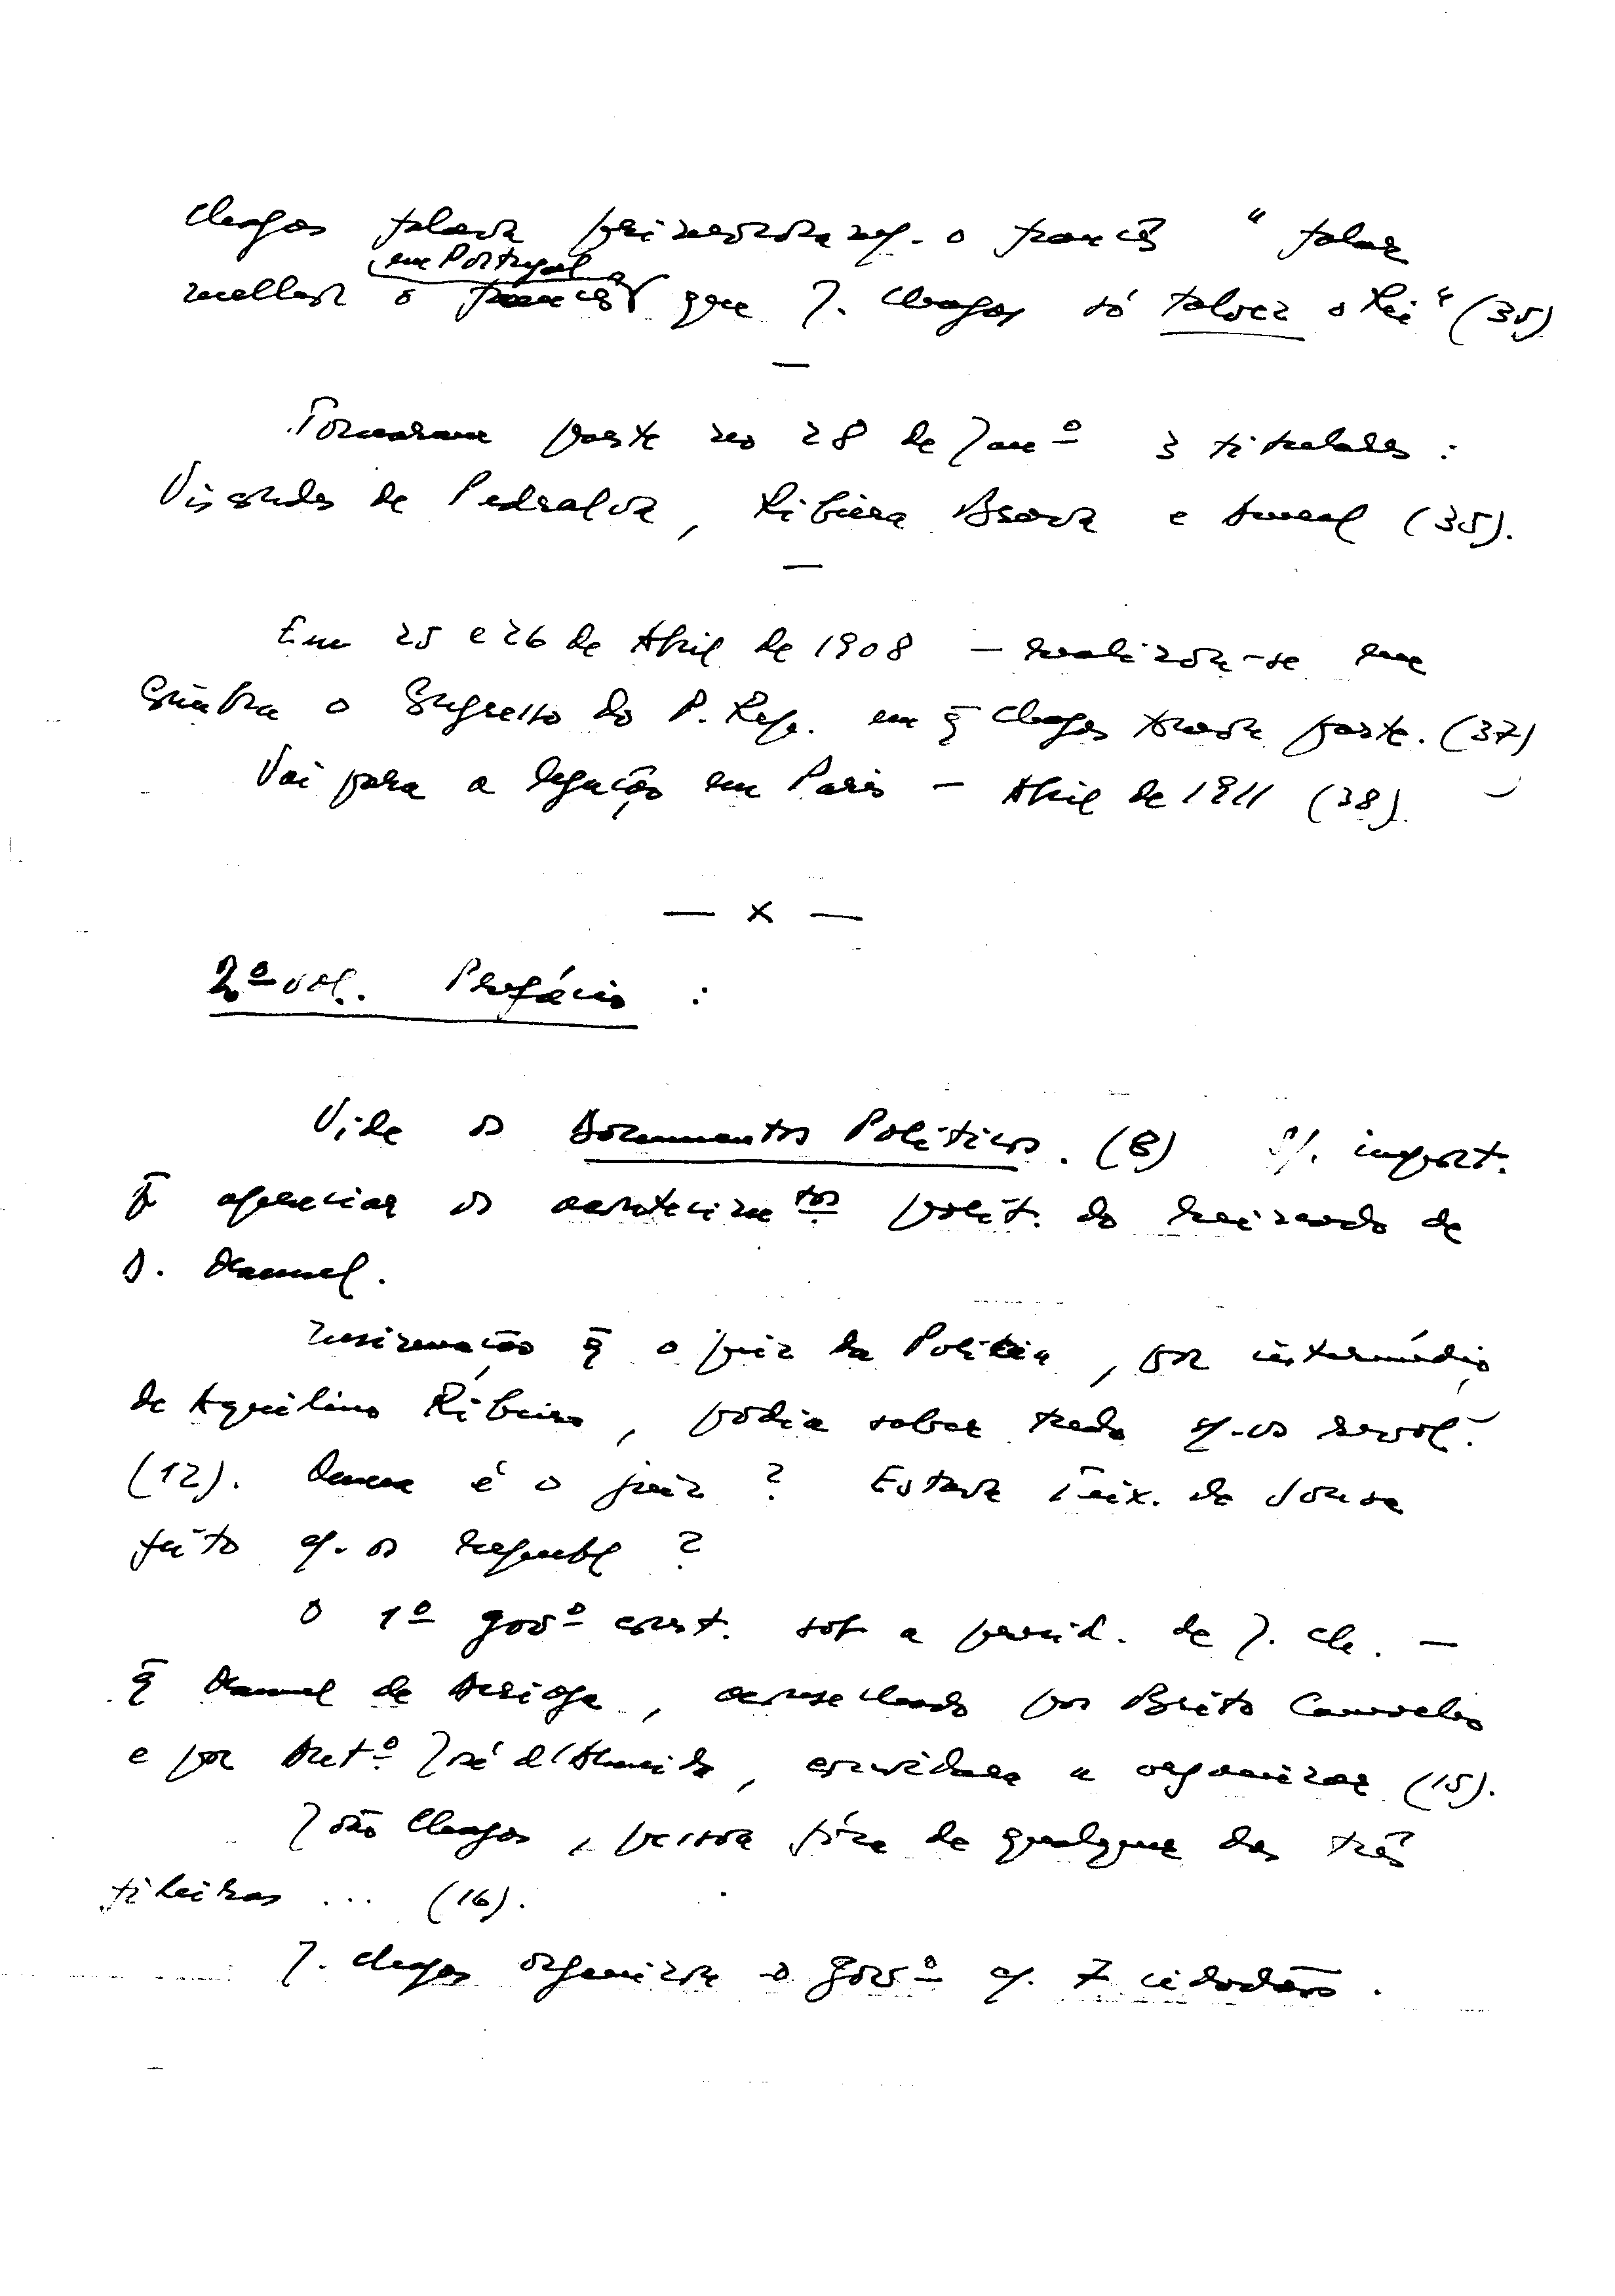 Chagas falava primorosamte. o francês "falar
em Portugal
melhor o francês que J. Chagas só talvez o Rei" (35)
—
Tomaram parte no 28 de Janº 3 titulares :
Viscondes de Pedralva, Ribeira Brava e Ameal (35).
—
Em 25 e 26 de Abril de 1908 – realizou-se em
Coimbra o Congresso do P. Rep. em q̄ Chagas tomou parte. (37)
Vai para a legação em Paris – Abril de 1911 (38).
— x —
2º vol. Prefácio :
Vide os Documentos Políticos. (8) import.
p̄ apreciar os acontecimentos polít. do reinado de
D. Manuel.
Insinuação q̄ o juiz da Polícia, por intermédio
de Aquilino Ribeiro, podia saber tudo c. os revol.
(12). Quem é o juiz ? Estava Teix. de Sousa
feito c. os republ ?
O 1º govº const. sob a presid. de J. Ch. –
q̄ Manuel de Arriaga, aconselhado por Brito Camacho
e por Antº José d'Almeida, convidara a organizar (15).
João Chagas, pessoa fóra de qualquer das três
fileiras ... (16).
J. Chagas organizou o govº c. 7 cidadãos.